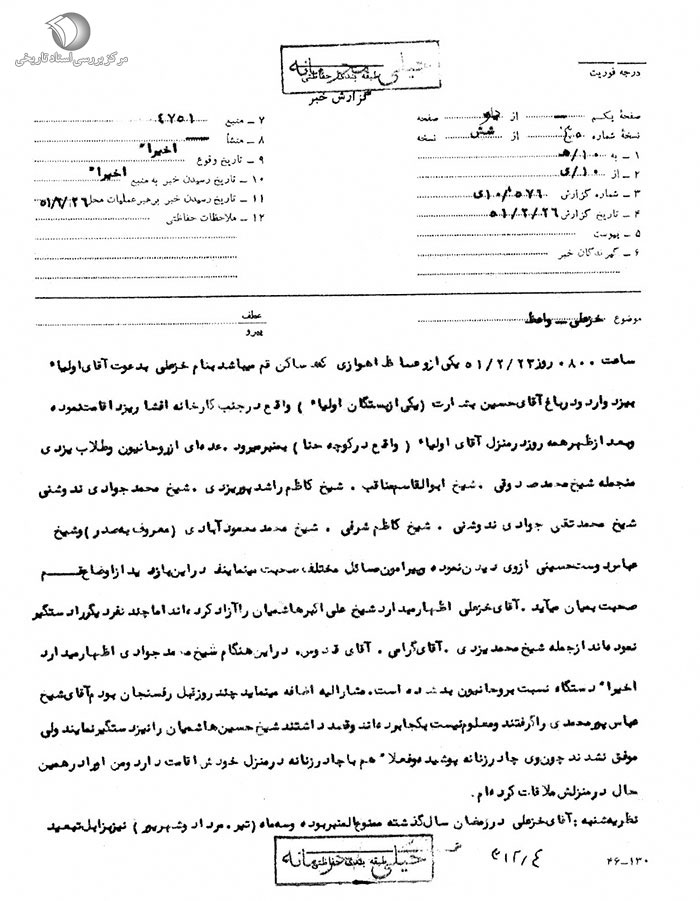 مرکز بررسی اسناد تاریخی
خیلی محرمانه
طبقه بندی حفاظتی
گزارش خبر
درجه فوریت
صفحهٔ یکم — از دو صفحه
نسخهٔ شماره از شش نسخه
۱ – به ۱۰/هـ
۲ – از ۱۰/ی
۳ – شماره گزارش ۵۷۶/۱۰ی
۴ – تاریخ گزارش ۵۱/۲/۲۶
۵ – پیوست
۶ – گیرندگان خبر
۷ – منبع ۴۷۵۱
۸ – منشأ —
۹ – تاریخ وقوع اخیراً
۱۰ – تاریخ رسیدن خبر به منبع اخیراً
۱۱ – تاریخ رسیدن خبر برهبر عملیات محل ۵۱/۲/۲۶
۱۲ – ملاحظات حفاظتی
موضوع خزعلی – واعظ
عطف
پیرو
ساعت ۰۸۰۰ روز ۵۱/۲/۲۳ یکی از وعاظ اهوازی که ساکن قم میباشد بنام خزعلی بدعوت آقای اولیاء
بیزد وارد و در باغ آقای حسین بشارت (یکی از بستگان اولیاء) واقع در جنب کارخانه افشار یزد اقامت نموده
و بعد از ظهر همه روز در منزل آقای اولیاء (واقع در کوچه حنا) بمنبر میرود . عده‌ای از روحانیون و طلاب یزدی
منجمله شیخ محمد صدوقی . شیخ ابوالقاسم مناقب . شیخ کاظم راشد پور یزدی . شیخ محمد جوادی ندوشنی
شیخ محمد تقی جوادی ندوشنی . شیخ کاظم شرفی . شیخ محمد محمودآبادی (معروف به صدر) و شیخ
عباس دوست حسینی از وی دیدن نموده و پیرامون مسائل مختلف صحبت مینمایند در این بازدید از اوضاع قم
صحبت بمیان میآید . آقای خزعلی اظهار میدارد شیخ علی اکبر هاشمیان را آزاد کرده‌اند اما چند نفر دیگر را دستگیر
نموده‌اند از جمله شیخ محمد یزدی . آقای گرامی . آقای قدوس . در این هنگام شیخ محمد جوادی اظهار میدارد
اخیراً دستگاه نسبت بروحانیون بد شده است . مشارالیه اضافه مینماید چند روز قبل رفسنجان بودم آقای شیخ
عباس پورمحمدی را گرفتند و معلوم نیست بکجا برده‌اند و قصد داشتند شیخ حسین هاشمیان را نیز دستگیر نمایند ولی
موفق نشدند چون وی چادر زنانه پوشیده و فعلاً هم با چادر زنانه در منزل خودش اقامت دارد و من او را در همین
حال در منزلش ملاقات کرده‌ام .
نظریه شنبه : آقای خزعلی در رمضان سال گذشته ممنوع المنبر بوده و سه ماه (تیر . مرداد و شهریور) نیز بزابل تبعید
خیلی محرمانه
طبقه بندی حفاظتی
۳۱۲/۴
۴۶–۱۳۰